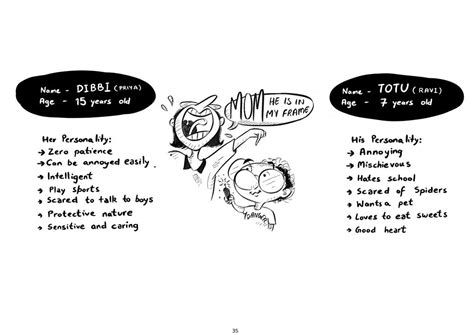 Name - DIBBI (PRIYA)
Age - 15 years old
Her Personality:
→ Zero patience
→ Can be annoyed easily.
→ Intelligent
→ Play sports
→ Scared to talk to boys
→ Protective nature
→ Sensitive and caring
MOM HE IS IN
MY FRAME
DANGER
Name - TOTU (RAVI)
Age - 7 years old
His Personality:
→ Annoying
→ Mischievous
→ Hates school
→ Scared of Spiders
→ Wants a pet
→ Loves to eat sweets
→ Good heart
35